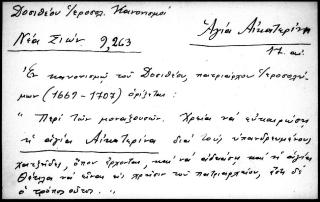 Δοσιθέου Ἱεροσολ. Κανονισμοί
Ἁγία Αἰκατερίνη
Νέα Σιών 9,263
17. αἰ.
Ἐν κανονισμῷ τοῦ Δοσιθέου, πατριάρχου Ἱεροσολύ-
μων (1669-1707) ὁρίζεται:
"Περὶ τῶν μοναζουσῶν. Χρεία νὰ εὐκαιρώσῃ
ἡ ἁγία Αἰκατερίνα διὰ τοὺς ὑπανδρευμένους
χατζῆδες, ὅπου ἔρχονται, καὶ νὰ καὶ ἡ ἁγία
Θέκλα νὰ εἶναι εἰς τοῦ πατριαρχείου, ἔτσι δὲ
ὁ τρόπος οὗτος. "